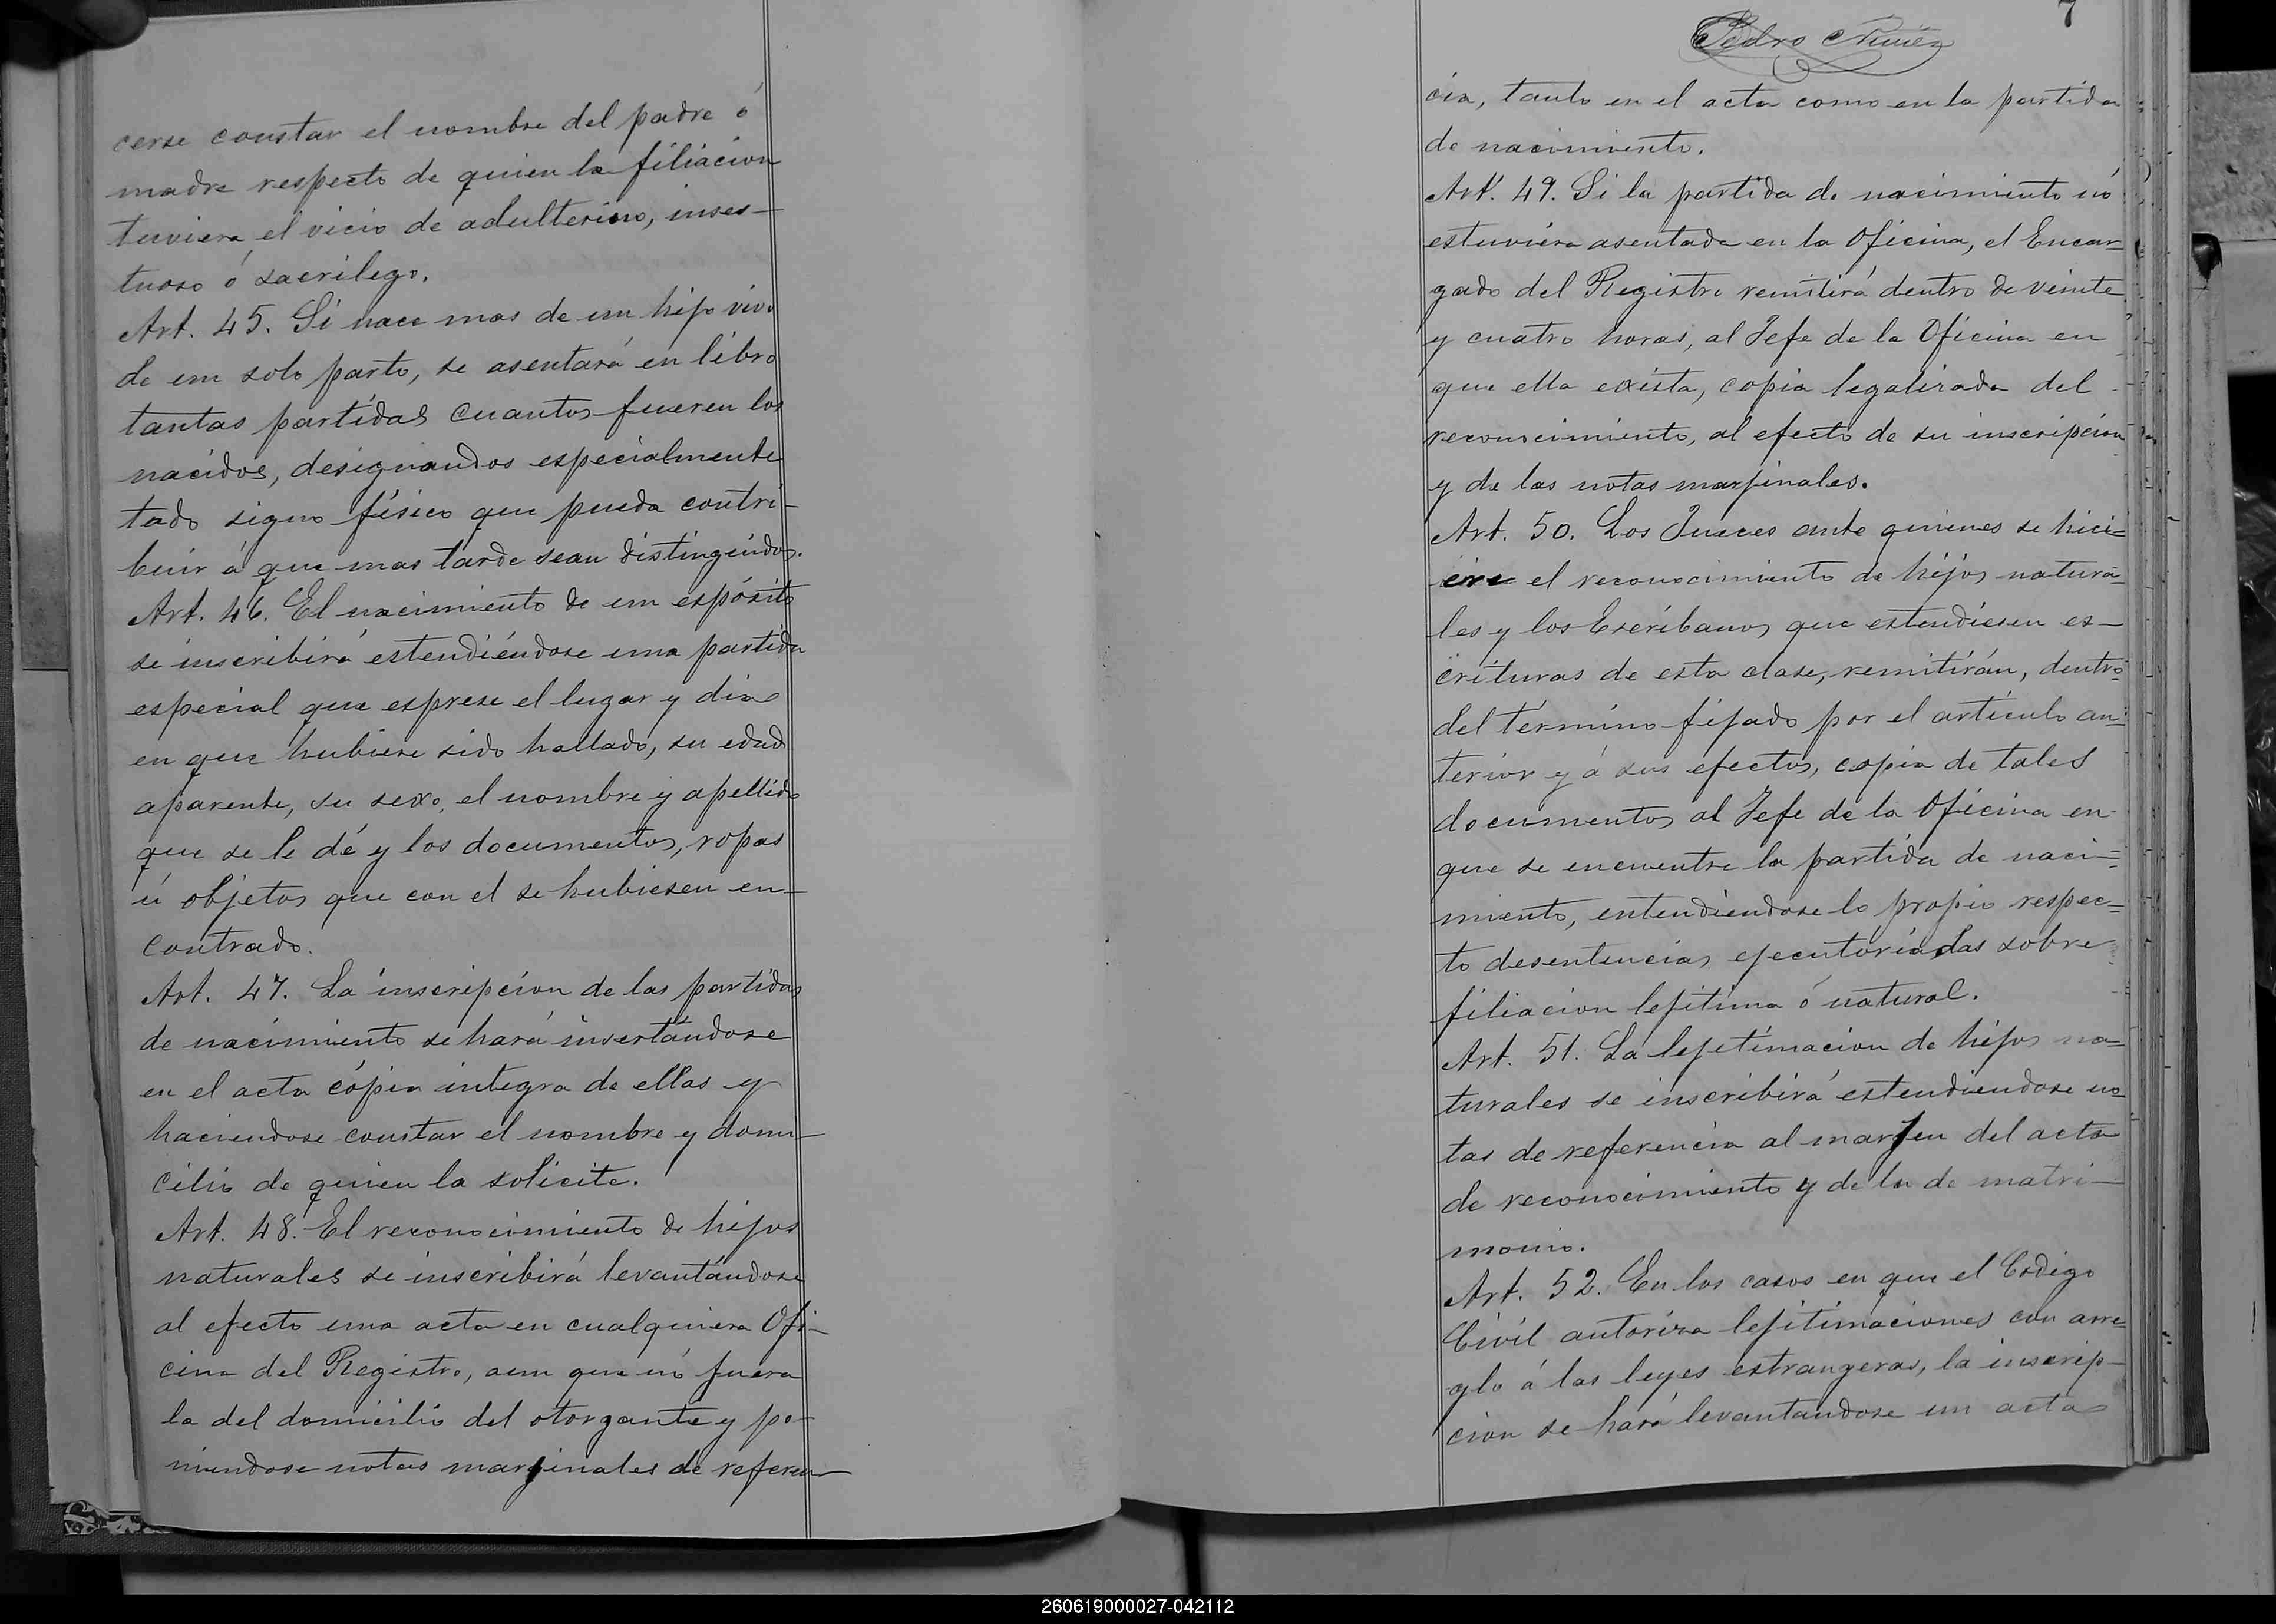 cerse constar el nombre del padre ó
madre respecto de quien la filiacion
tuviera el vicio de adulterino, inses-
tuoso ó sacrilego.
Art. 45. Si nace mas de un hijo vivo
de un solo parto, se asentará en libro
tantas partidas cuantos fueren los
nacidos, designandos especialmente
todo signo físico que pueda contri-
buir á que mas tarde sean distinguidos.
Art. 46. El nacimiento de un espósito
se inscribirá estendiéndose una partida
especial que esprese el lugar y dia
en que hubiere sido hallado, su edad
aparente, su sexo, el nombre y apellido
que se le dé y los documentos, ropas
ú objetos que con el se hubiesen en-
contrado.
Art. 47. La inscripcion de las partidas
de nacimiento se hará insertándose
en el acta cópia integra de ellas y
haciendose constar el nombre y domi-
cilio de quien la solicite.
Art. 48. El reconocimiento de hijos
naturales se inscribirá levantándose
al efecto una acta en cualquiera Ofi-
cina del Registro, aun que nó fuera
la del domicilio del otorgante y po-
niendose notas marginales de referen-
7
Pedro Nuñez
cia, tanto en el acta como en la partida
de nacimiento.
Art. 49. Si la partida de nacimiento nó
estuviera asentada en la Oficina, el Encar=
gado del Registro remitirá dentro de veinte
y cuatro horas, al Jefe de la Oficina en
que ella exista, copia legalizada del
reconocimiento, al efecto de su inscripcion
y de las notas marjinales.
Art. 50. Los Jueces ante quienes se hici=
ere el reconocimiento de hijos natura-
les y los Escribanos que estendiesen es-
crituras de esta clase, remitirán, dentro
del término fijado por el artículo an=
terior y á sus efectos, copia de tales
documentos al Jefe de la Oficina en
que se encuentre la partida de naci=
miento, entendiendose lo propio respec=
to desentencias ejecutoriadas sobre
filiacion lejitima ó natural.
Art. 51. La lejitimacion de hijos na=
turales se inscribirá estendiendose no=
tas de referencia al marjen del acta
de reconocimiento y de la de matri-
monio.
Art. 52. En los casos en que el Codigo
Civil autoriza lejitimaciones con arre=
glo á las leyes estrangeras, la inscrip-
cion se hará levantandose un acta
260619000027-042112